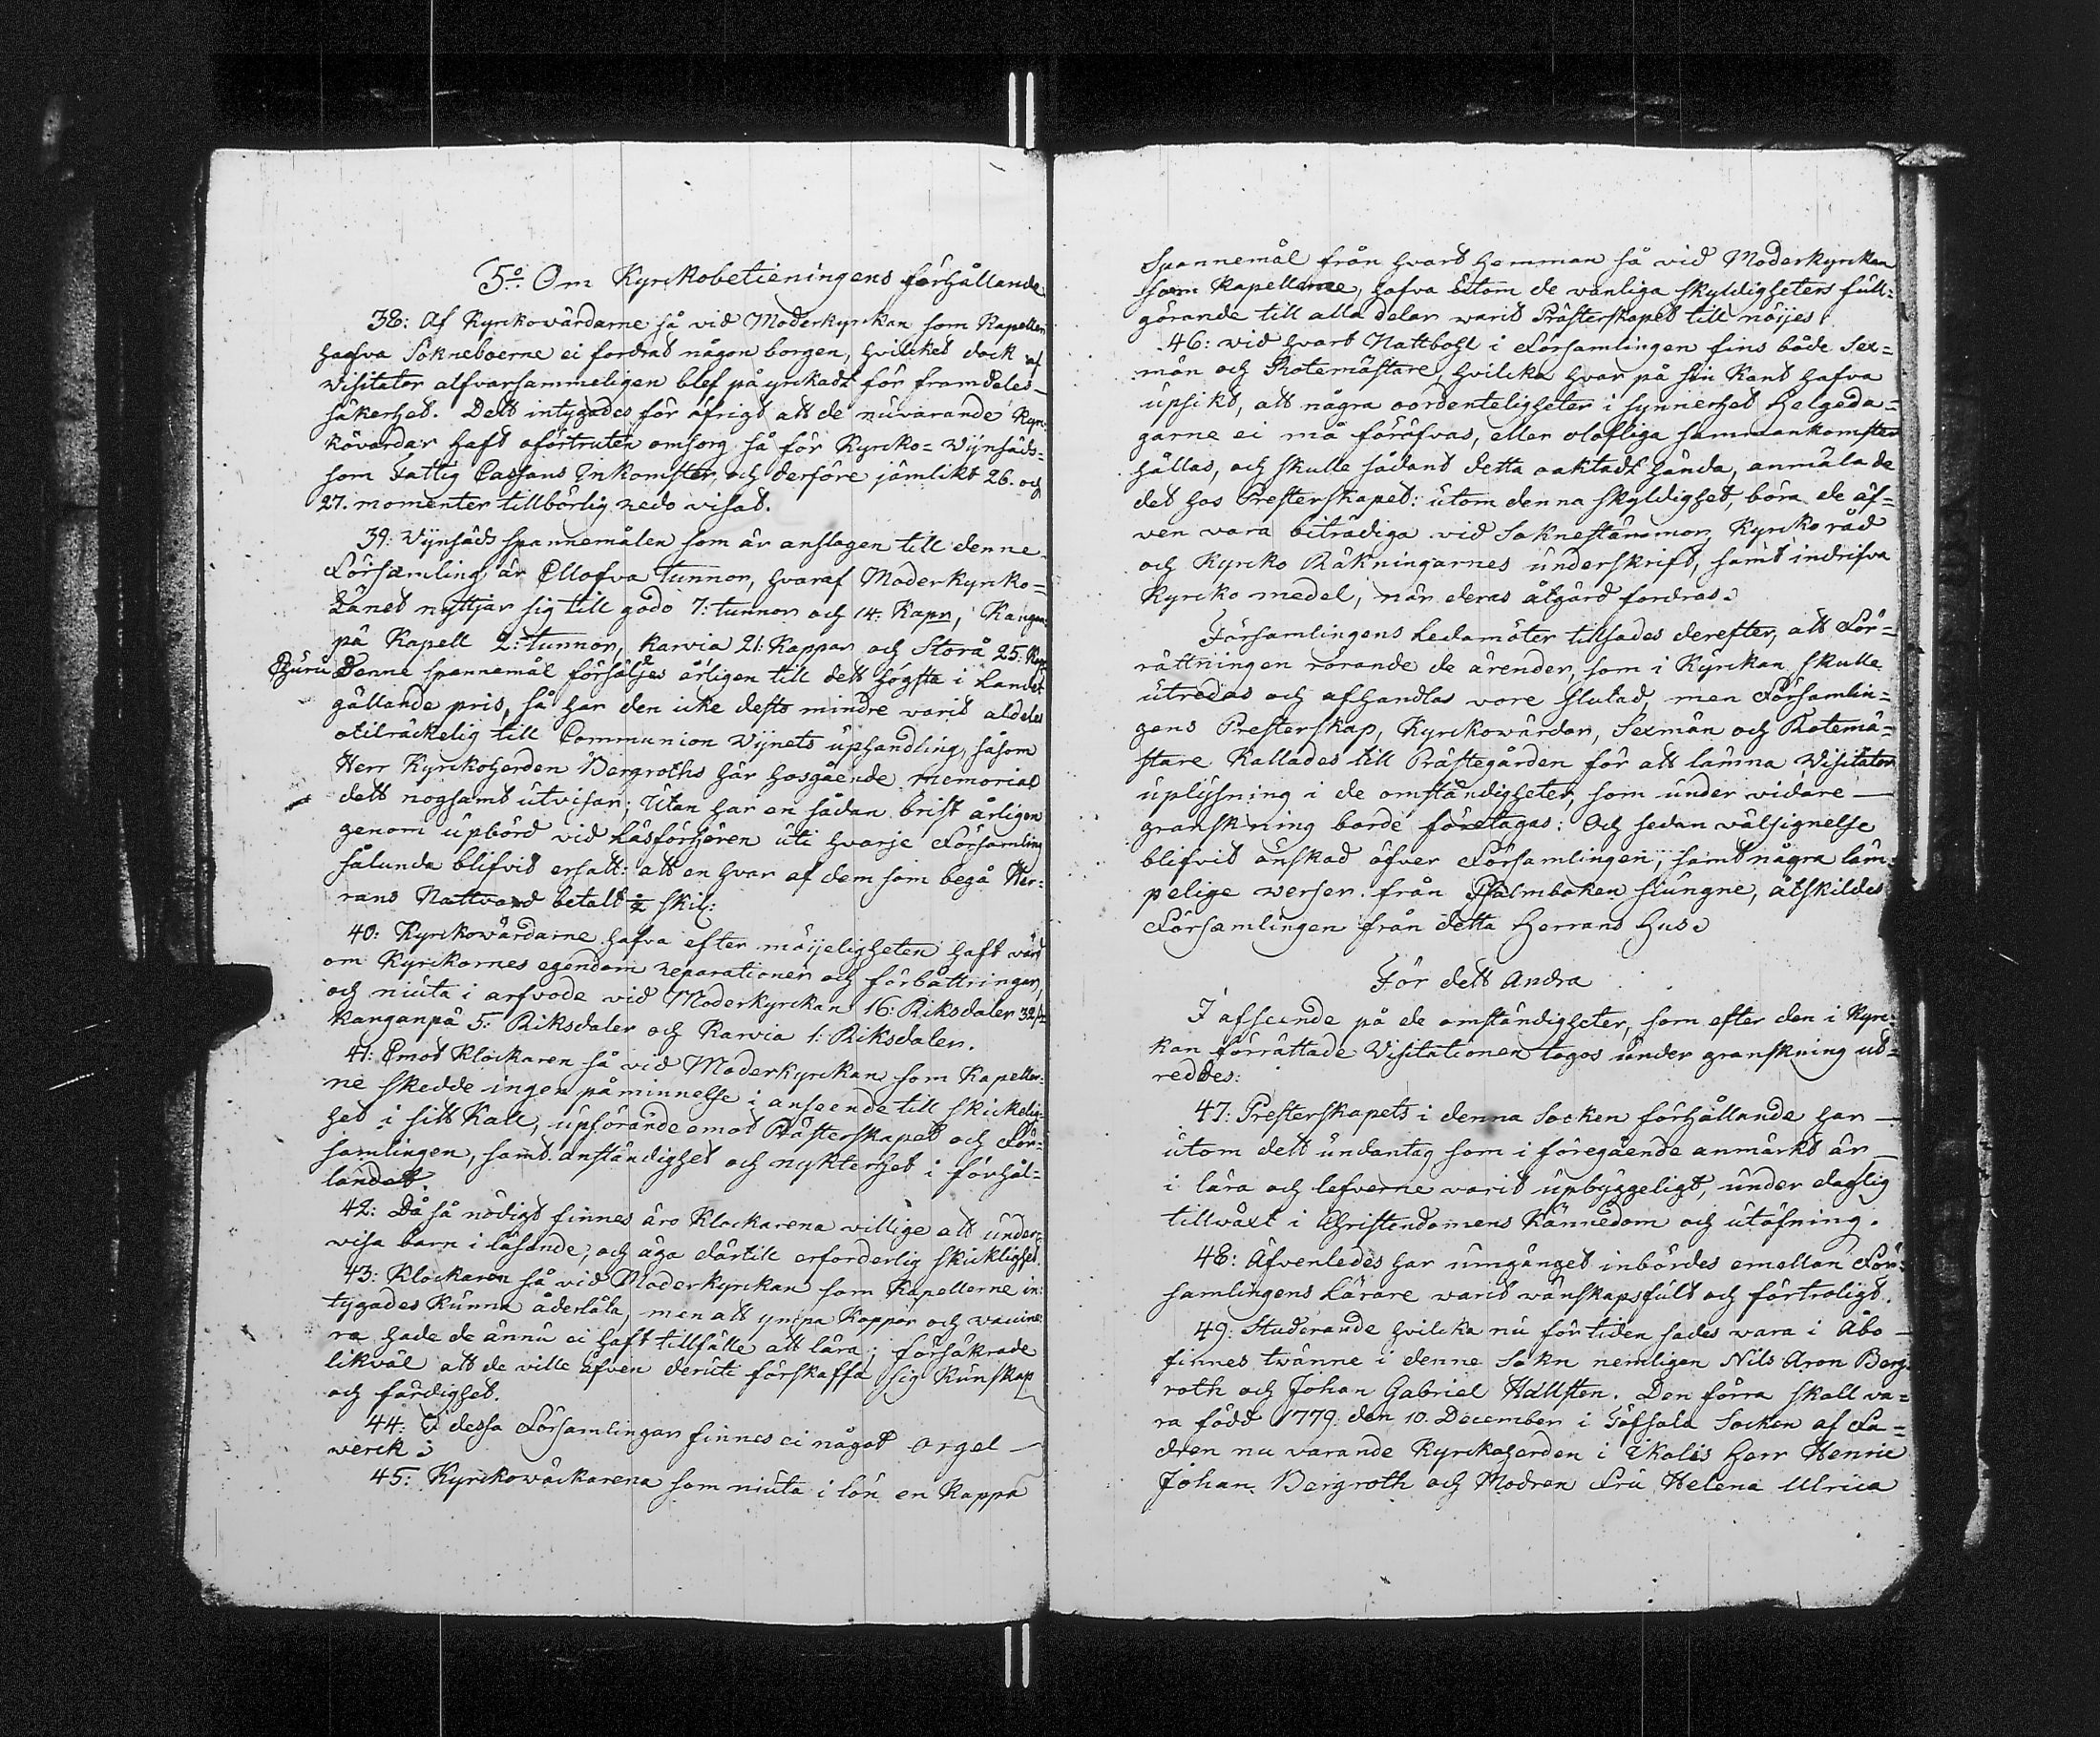 5:o Om Kyrkobetieningens förhållande
38: Af Kyrkowärdarne så vid Moderkyrkan som Kapellen
hafva Sokneboerne ei fordrat någon borgen, hvilcket dock af
Visitator alfvarsammeligen blef påyrckadt för framdeles
säkerhet. Dett intygades för öfrigt att de nuvarande Kyr-
kovärdar haft oförtruten omsorg så för Kyrcko- Vijnsäds-
som Fattig Cassans Inkomster, och derföre jämlikt 26. och
27. momenter tillbörlig redo visat.
39: Vijnsäds spannemålen som är anslagen till denne
Församling är Ellofva tunnor, hvaraf Moderkyrko-
Länet nyttjar sig till godo 7: tunnor och 14: Kapr, Kangan-
pä Kapell 2: tunnor, Karvia 21: Kappar och Storå 25: Kapr
Ehuru Denne spannemål försäljes årligen till dett högsta i Landet
gällande pris, så har den icke desto mindre varit aldeles
otilräckelig till Communion Vijnets uphandling, såsom
Herr Kyrkoherden Bergroths här hosgående memorial
dett nogsamt utvisar; Utan har en sådan brist årligen
genom upbörd vid Läsförhören uti hvarje Församling
sålunda blifvit ersatt: att en hvar af dem som begå Her-
rans Nattvard betalt 1/2 skil:
40: Kyrckowärdarne hafva efter möijeligheten haft vård
om Kyrckornes egendom reparationer och förbättringar,
och niuta i arfvode vid Moderkyrckan 16: Riksdaler 32 sk
Kanganpä 5: Riksdaler och Karvia 1: Riksdaler.
41: Emot Klockaren så vid Moderkyrckan som Kapeller-
ne skedde ingen påminnelse i anseende till skickelig-
het i sitt Kall, upförande emot Prästerskapet och För-
samlingen, samt anständighet och nykterhet i förhål-
landet.
42: Då så nödigt finnes äro Klockarena willige att under-
visa barn i läsande, och äga därtill erforderlig skicklighet.
43: Klockaren så vid Moderkyrckan som Kapellerne in-
tygades kunna åderlåta, men att ympa Koppor och vaccine-
ra hade de ännu ei haft tillfälle att lära; försäkrade
likväl att de ville äfven deruti förskaffa sig Kunskap
och färdighet.
44: I dessa Församlingar finnes ei något Orgel
werck.
45: Kyrckowäckarena som niuta i lön en Kappa
Spannemål från hvart hemman så vid Moderkyrckan
som Kapellerne, hafva utom de vanliga skyldigheters full-
görande till alla delar warit Prästerskapet till nöijes.
46: vid hvart Nattbohl i Församlingen fins både Sex-
män och Rotemästare, hvilcka hvar på sin Kant hafva
upsikt, att några oordenteligheter i synnerhet Helgeda-
garne ei må föröfvas, eller olofliga sammankomster
hållas, och skulle sådant detta oaktadt hända, anmäla de
det hos Presterskapet: utom denna skyldighet, böra de äf-
ven vara biträdiga vid Soknestämmor, Kyrcko råd
och Kyrcko Räkningarnes underskrift, samt indrifva
Kyrcko medel, när deras åtgärd fordras.
Församlingens Ledamöter tillsades derefter, att För-
rättningen rörande de ärender, som i Kyrckan skulle
utredas och afhandlas vore slutad, men Församlin-
gens Presterskap, Kyrckowärdar, Sexmän och Rotemä-
stare Kallades till Prästegården för att lämna Visitator
uplysning i de omständigheter, som under vidare
granskning borde företagas: Och sedan välsignelse
blifvit önskad öfver Församlingen, samt några läm-
pelige verser från Psalmboken siungne, åtskildes
Församlingen från detta Herrans Hus.
För dett Andra
I afseende på de omständigheter, som efter den i Kyrc-
kan förrättade Visitationen togos under granskning ut-
reddes:
47: Presterskapets i denna Socken förhållande har
utom dett undantag som i föregående anmärkt är
i lära och lefverne varit upbyggeligt, under daglig
tillväxt i Christendomens Kännedom och utöfning.
48: Äfvenledes har umgänget inbördes emellan För-
samlingens Lärare warit wänskapsfult och förtroligt.
49: Studerande hvilcka nu för tiden sades vara i Åbo
finnes twänne i denne Sokn nemligen Nils Aron Berg-
roth och Johan Gabriel Hällsten. Den förra skall va-
ra född 1779. den 10. December i Töfsala Socken af Fa-
dren nu varande Kyrckoherden i Ikalis Herr Henric
Johan Bergroth och Modren Fru Helena Ulrica